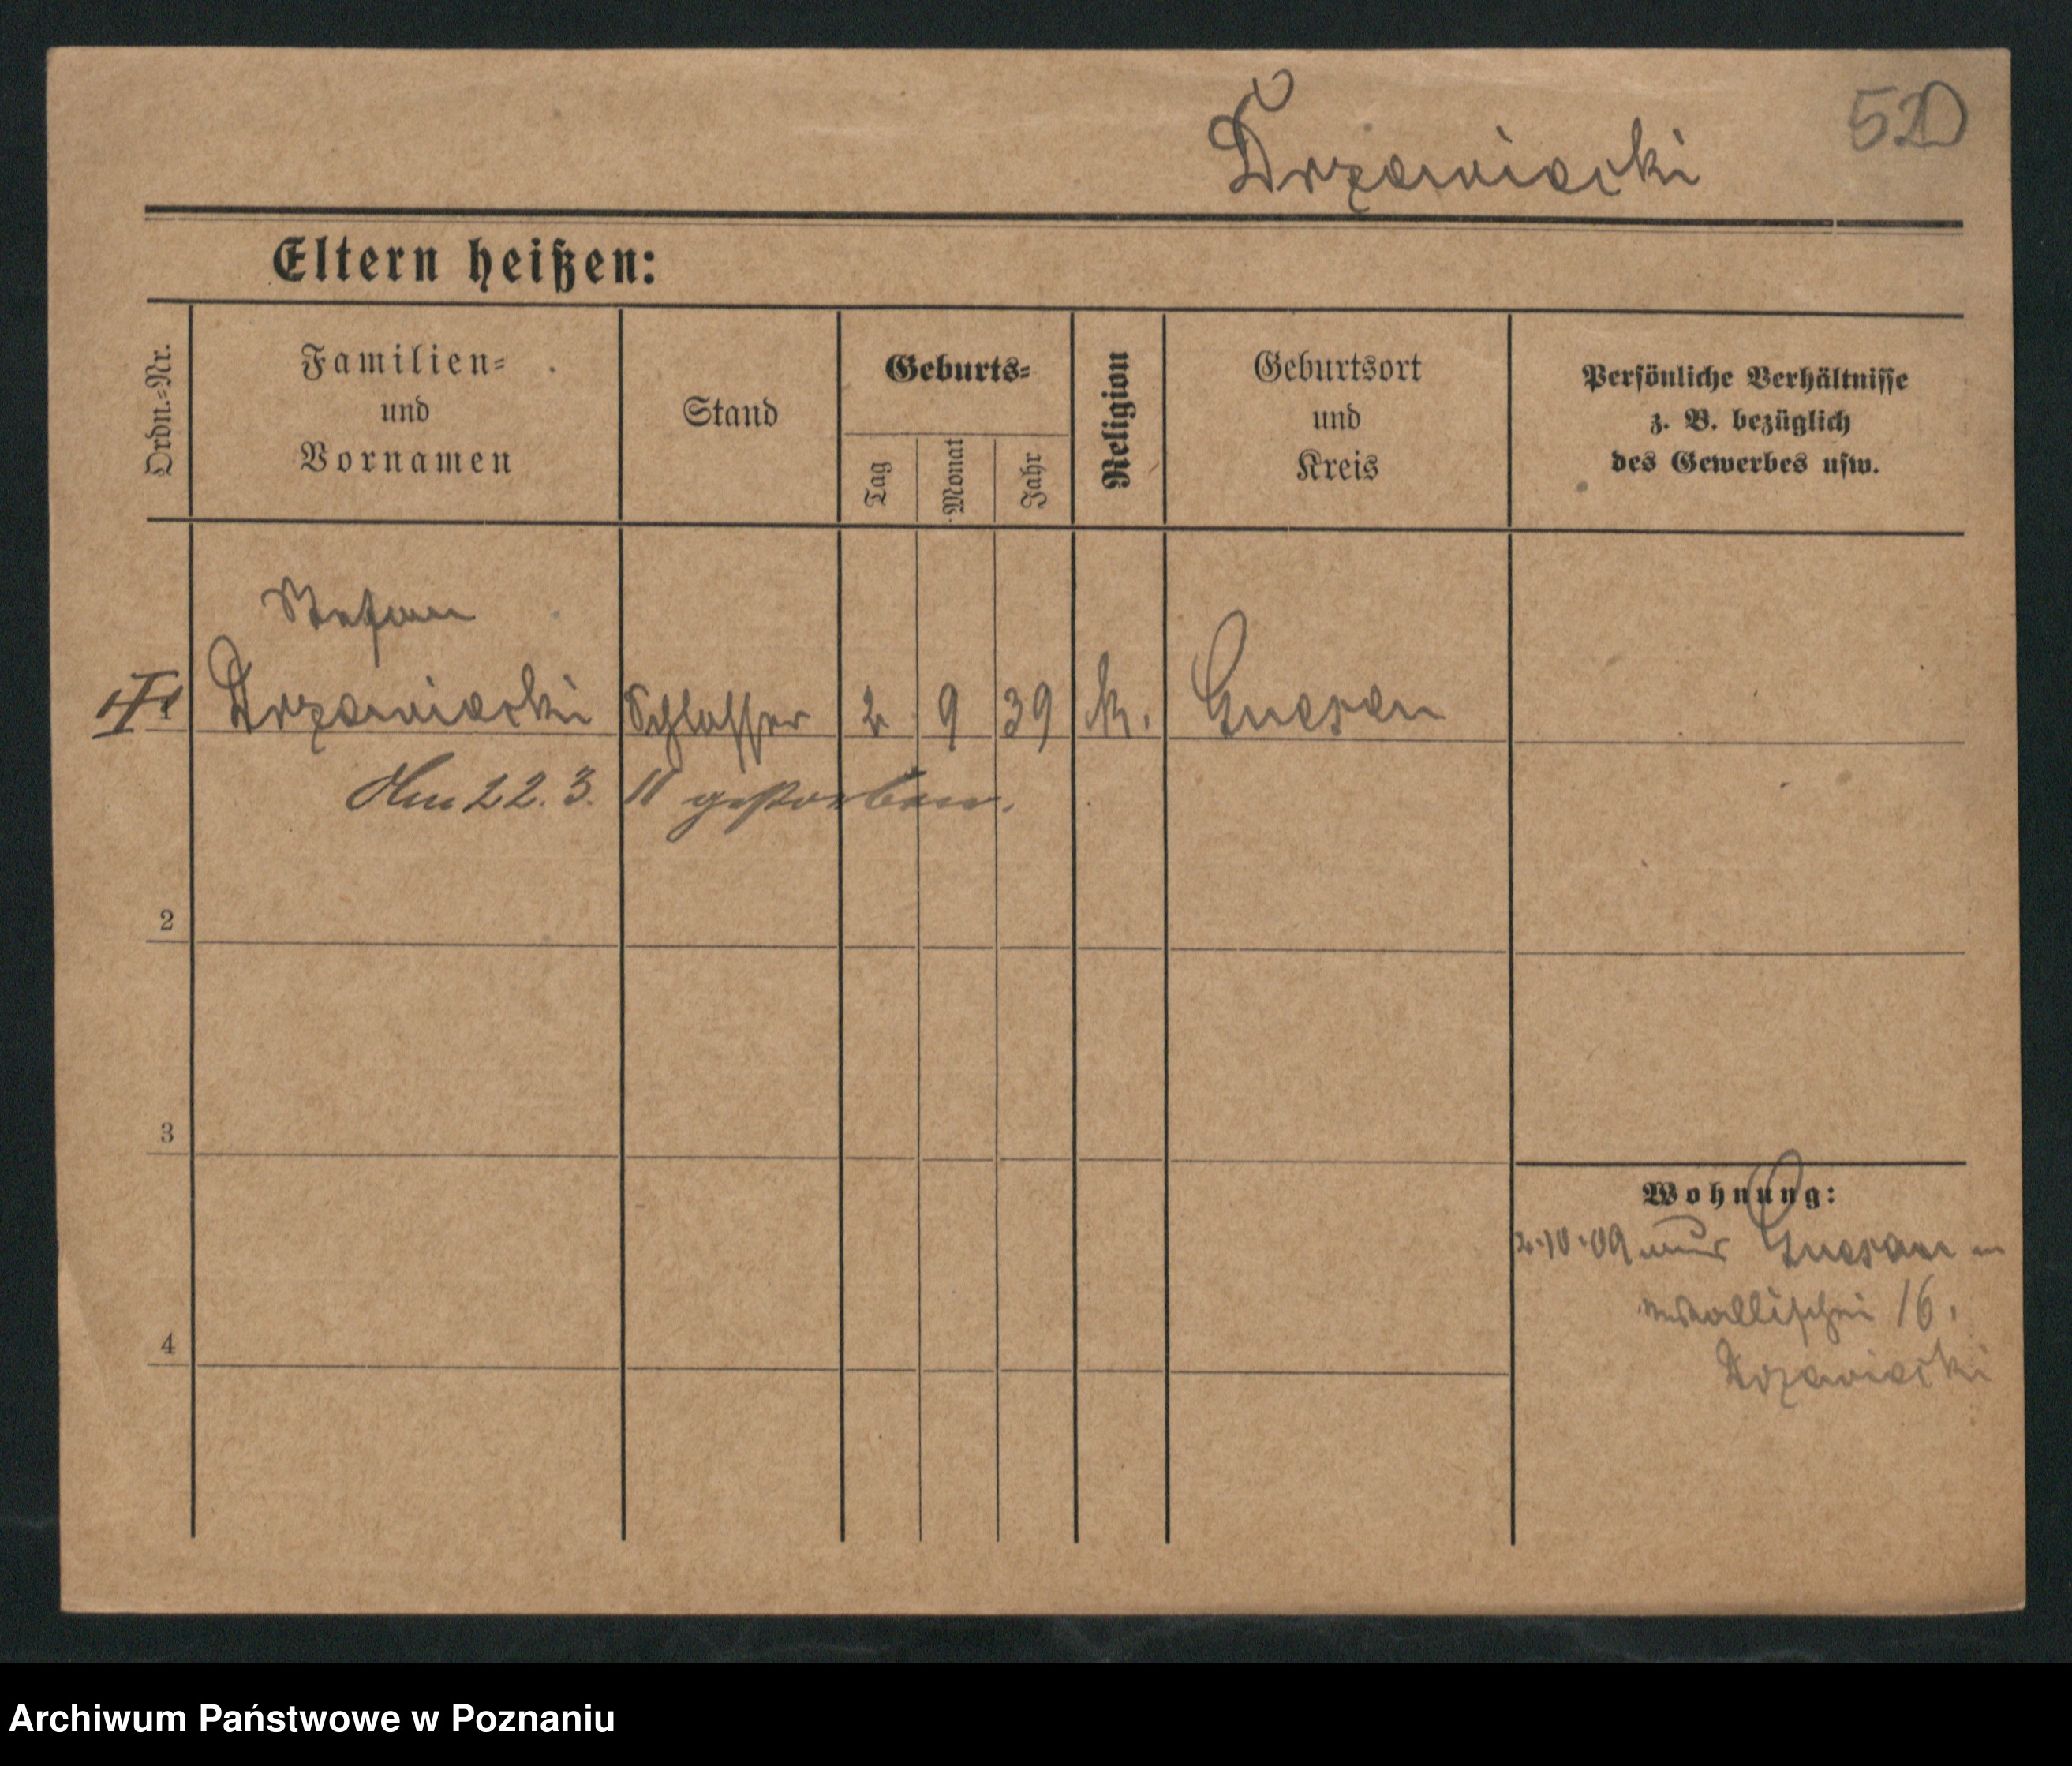 Drzewiecki
Eltern heißen:
Ordn.=Nr.
Familien=
und
Vornamen
Stand
Geburts=
Tag
Monat
Jahr
Religion
Geburtsort
und
Kreis
Persönliche Verhältnisse
z. B. bezüglich
des Gewerbes usw.
Stefan
1 Drzewiecki Schlosser 2 9 39 k. Gnesen
Am 22. 3. 11 gestorben.
2
3
4
Wohnung:
2.10.09 aus Gnesen
16.
Drzewiecki
Archiwum Państwowe w Poznaniu